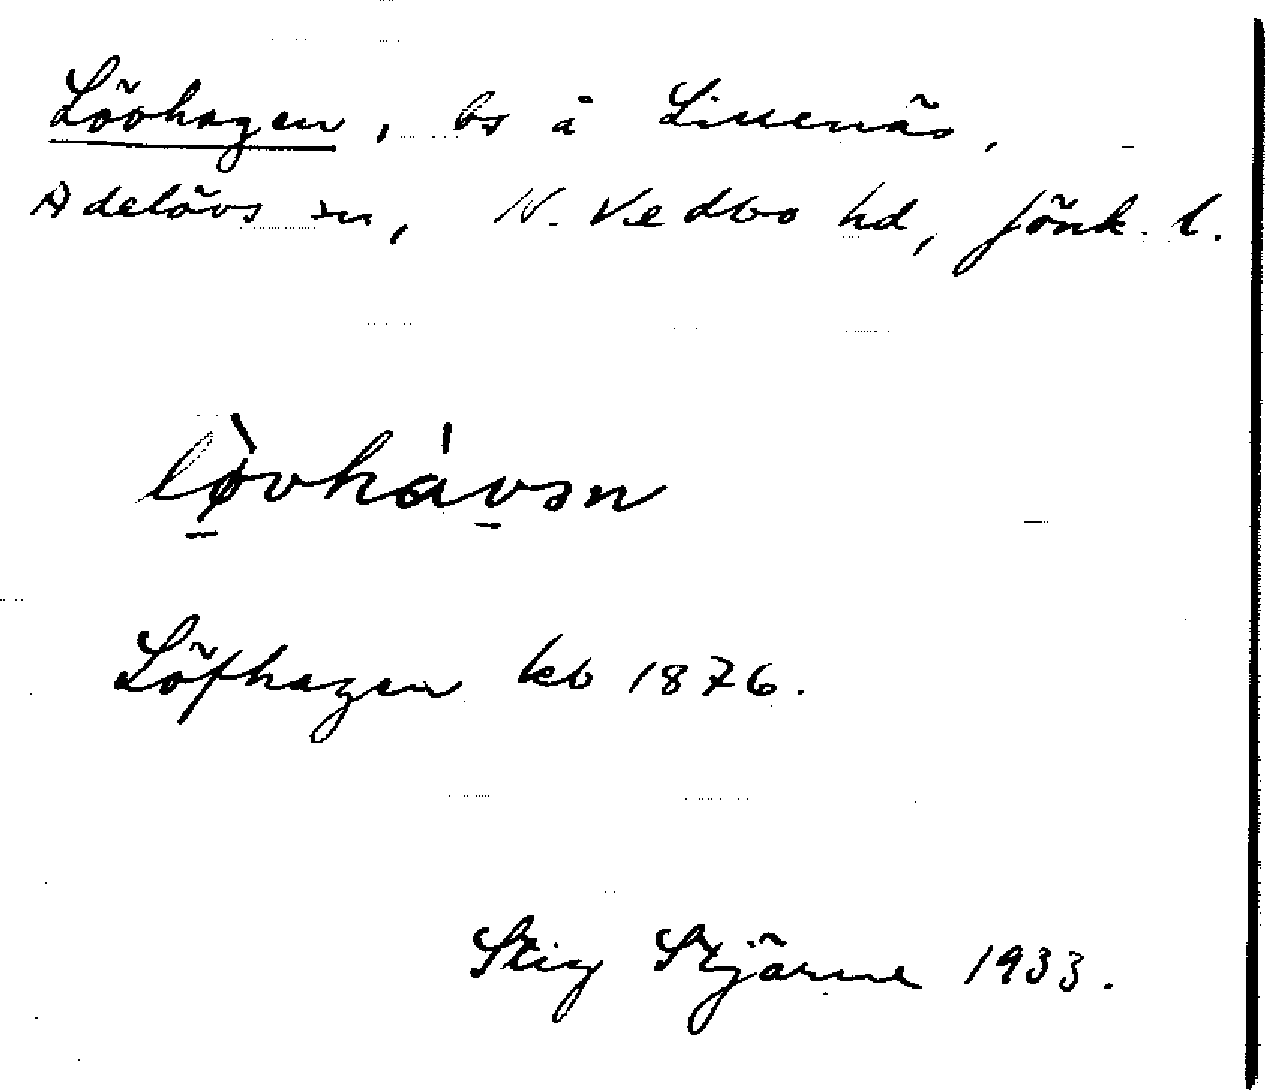 Lövhagen, bs å Linenäs,
Adelövs sn, N. Vedbo hd, Jönk. l.
lø̀vhávən
Löfhagen kb 1876.
Stig Stjärne 1933.